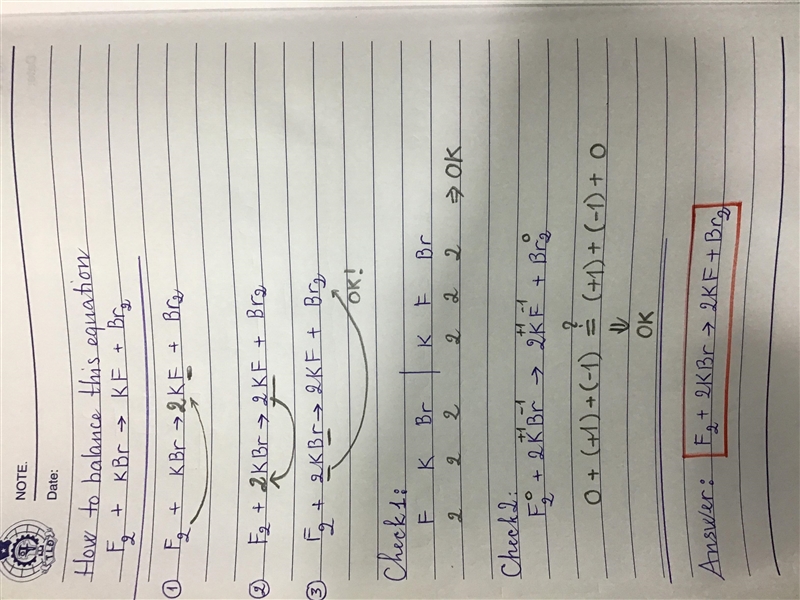 NOTE.
Date:
How to balance this equation
F₂ + KBr → KF + Br₂
① F₂ + KBr → 2KF + Br₂
② F₂ + 2KBr → 2KF + Br₂
③ F₂ + 2KBr → 2KF + Br₂
OK!
Check 1:
F K Br | K F Br
2 2 2 2 2 2 ⇒ OK
Check 2:
F₂⁰ + 2K⁺¹Br⁻¹ → 2K⁺¹F⁻¹ + Br₂⁰
0 + (+1) + (-1) =? (+1) + (-1) + 0
⇓
OK
Answer: F₂ + 2KBr → 2KF + Br₂